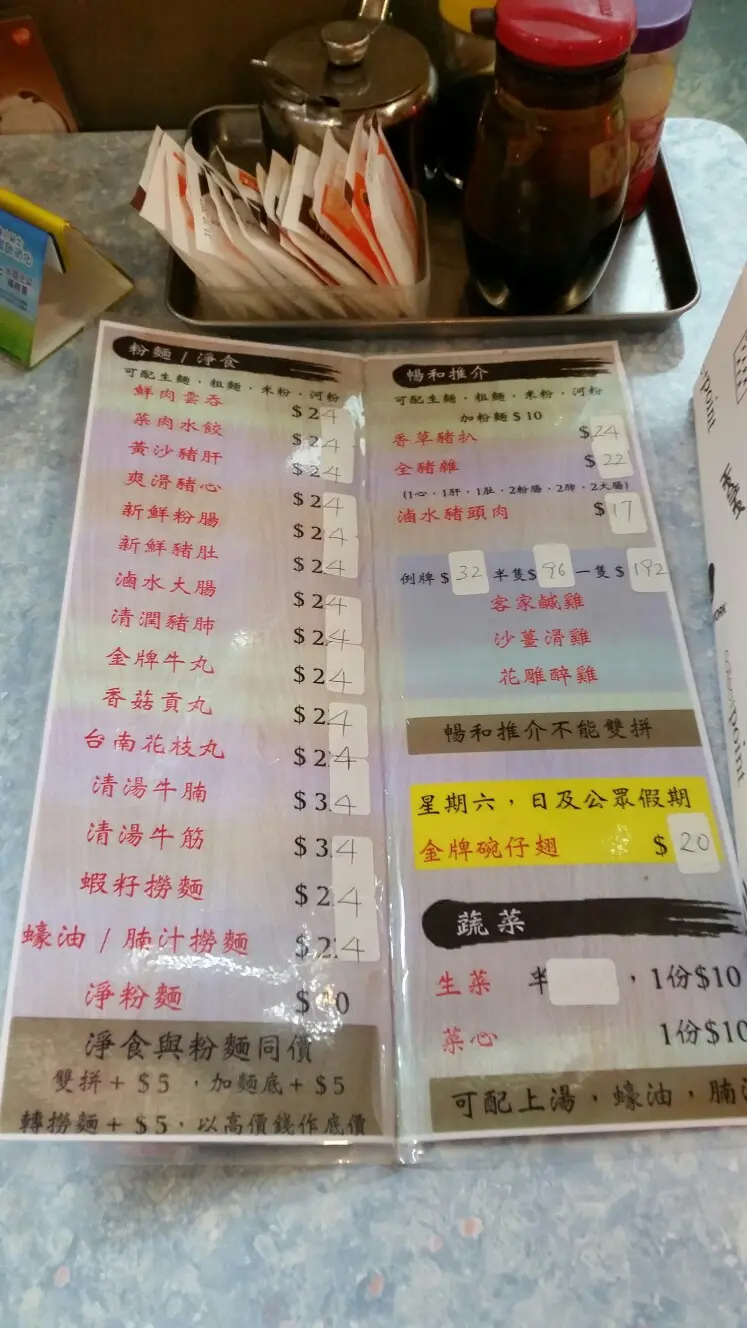 粉麵 / 淨食
可配生麵．粗麵．米粉．河粉
鮮肉雲吞 $24
菜肉水餃 $24
黃沙豬肝 $24
爽滑豬心 $24
新鮮粉腸 $24
新鮮豬肚 $24
滷水大腸 $24
清潤豬肺 $24
金牌牛丸 $24
香菇貢丸 $24
台南花枝丸 $24
清湯牛腩 $34
清湯牛筋 $34
蝦籽撈麵 $24
蠔油 / 腩汁撈麵 $24
淨粉麵 $10
淨食與粉麵同價
雙拼+$5 ，加麵底+$5
轉撈麵+$5，以高價錢作底價
暢和推介
可配生麵．粗麵．米粉．河粉
加粉麵$10
香草豬扒 $24
全豬雜 $22
(1心，1肝，1肚，2粉腸，2肺，2大腸)
滷水豬頭肉 $17
例牌$32 半隻$96 一隻$192
客家鹹雞
沙薑滑雞
花雕醉雞
暢和推介不能雙拼
星期六，日及公眾假期
金牌碗仔翅 $20
蔬菜
生菜 半 ，1份$10
菜心 1份$10
可配上湯，蠔油，腩
point
point